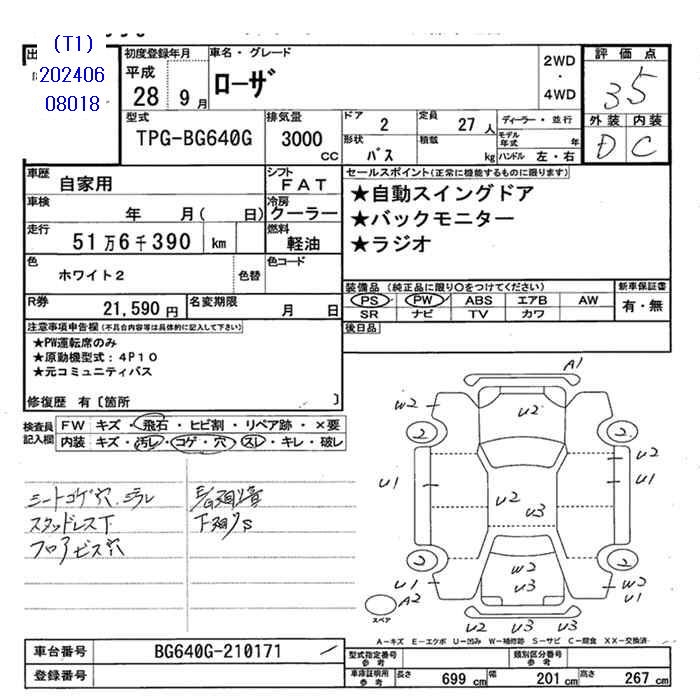 (T1)
202406
08018
初度登録年月
平成
28 9月
車名・グレード
ローザ
2WD
・
4WD
評価点
3.5
外装 内装
D C
型式
TPG-BG640G
排気量
3000
cc
ドア 2
形状 バス
定員 27人
積載 kg
ディーラー・並行
モデル年式 年
ハンドル 左・右
車歴 自家用
シフト FAT
車検 年 月( 日)
冷房 クーラー
走行 51万6千390 km
燃料 軽油
色 ホワイト2 色替
色コード
R券 21,590円
名変期限 月 日
セールスポイント(正常に機能するものに限ります)
★自動スイングドア
★バックモニター
★ラジオ
装備品(純正品に限り○をつけてください)
PS PW ABS エアB AW
SR ナビ TV カワ
新車保証書
有・無
後日品
注意事項申告欄(不具合内容等は具体的に記入して下さい)
★PW運転席のみ
★原動機型式:4P10
★元コミュニティバス
修復歴 有〔箇所 〕
検査員記入欄
FW キズ・飛石・ヒビ割・リペア跡・×要
内装 キズ・汚レ・コゲ・穴・スレ・キレ・破レ
シートコゲ穴、シラレ
スタッドレス下
フロアビス穴
下廻りS
A1
W2
U2
2
2
U2
U1
U1
U2
U3
2
2
W2
U3
U1
W2
U1
A2
スペア
U2 U3 U3
A-キズ E-エクボ U-凹み W-補修跡 S-サビ C-腐食 XX-交換済
車台番号 BG640G-210171
登録番号
型式指定番号 参考
類別区分番号 参考
車庫証明用 参考
長さ 699 cm 幅 201 cm 高さ 267 cm